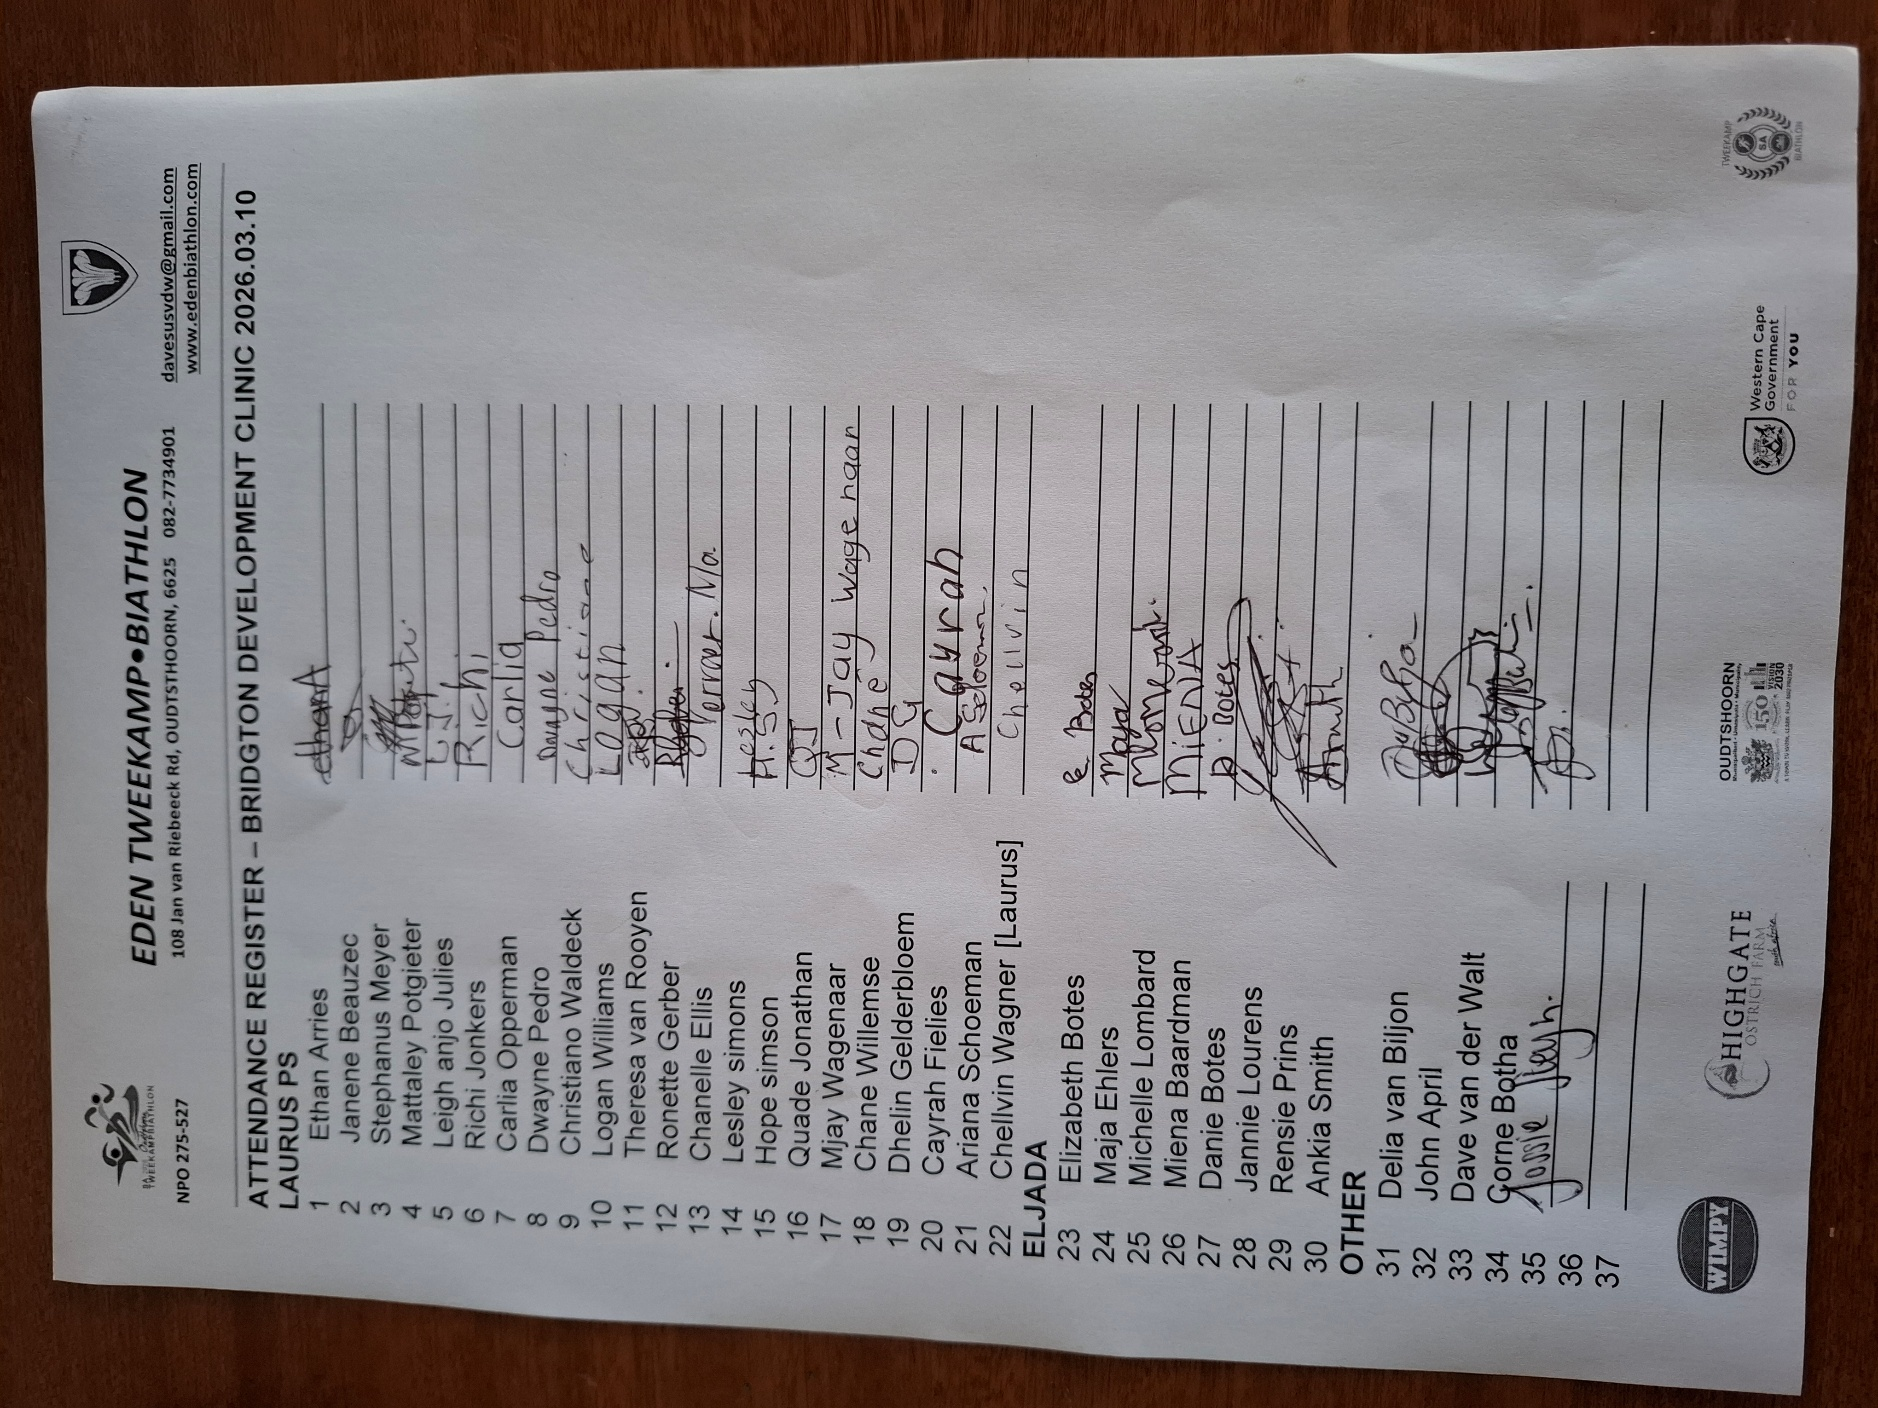 EDEN TWEEKAMP•BIATHLON
NPO 275-527
108 Jan van Riebeeck Rd, OUDTSTHOORN, 6625 082-7734901
davesusvdw@gmail.com
www.edenbiathlon.com
ATTENDANCE REGISTER – BRIDGTON DEVELOPMENT CLINIC 2026.03.10
LAURUS PS
1 Ethan Arries ethan A
2 Janene Beauzec
3 Stephanus Meyer
4 Mattaley Potgieter
5 Leigh anjo Julies L.J.
6 Richi Jonkers Richi
7 Carlia Opperman Carlia
8 Dwayne Pedro Dwayne Pedro
9 Christiano Waldeck Christiano
10 Logan Williams Logan
11 Theresa van Rooyen
12 Ronette Gerber
13 Chanelle Ellis
14 Lesley simons
15 Hope simson
16 Quade Jonathan QJ
17 Mjay Wagenaar M-Jay Wagenaar
18 Chane Willemse Chané
19 Dhelin Gelderbloem DG
20 Cayrah Fielies Cayrah
21 Ariana Schoeman
22 Chellvin Wagner [Laurus] Chellvin
ELJADA
23 Elizabeth Botes E. Botes
24 Maja Ehlers Maya
25 Michelle Lombard
26 Miena Baardman MiENA
27 Danie Botes D. Botes
28 Jannie Lourens
29 Rensie Prins
30 Ankia Smith
OTHER
31 Delia van Biljon
32 John April
33 Dave van der Walt
34 Gorne Botha
35
36
37
WIMPY
HIGHGATE
OSTRICH FARM
south africa
OUDTSHOORN
150
VISION
2030
Western Cape
Government
FOR YOU
TWEEKAMP
SA
BIATHLON